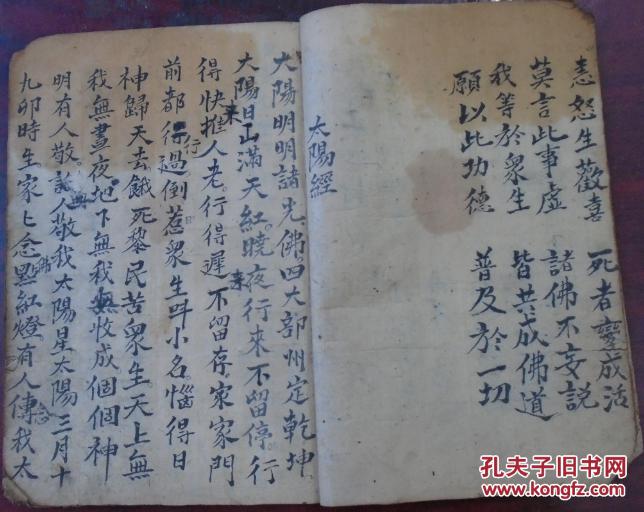 恚怒生歡喜 死者變成活
莫言此事虛 諸佛不妄說
我等於衆生 皆共成佛道
願以此功德 普及於一切
太陽經
太陽明明諸先佛四大部州定乾坤
太陽日出滿天紅曉夜行來不留停行
得快來摧人老行得遲來不留存家家門
前都行得過倒惹衆生呌小名惱得日
神歸天去餓死黎民苦衆生天上無
我無晝夜地下無我無收成個個神
明有人敬人敬我太陽星太陽三月十
九卯時生家匕念點紅燈有人傳我太
孔夫子旧书网
KONGFZ.COM